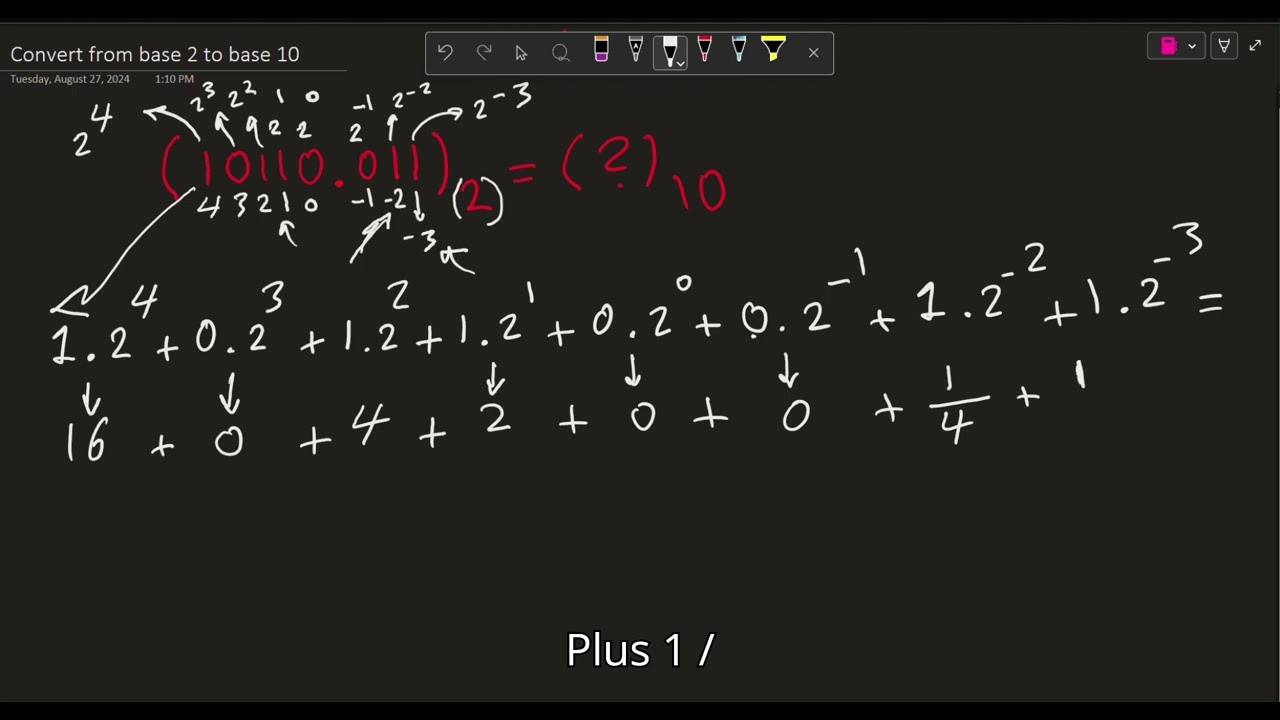 Convert from base 2 to base 10
Tuesday, August 27, 2024 1:10 PM
2^4 2^3 2^2 2^1 2^0 2^-1 2^-2 2^-3
(10110.011)_2 = (?)_10
4 3 2 1 0 -1 -2 -3
1.2^4 + 0.2^3 + 1.2^2 + 1.2^1 + 0.2^0 + 0.2^-1 + 1.2^-2 + 1.2^-3 =
16 + 0 + 4 + 2 + 0 + 0 + 1/4 + 1
Plus 1 /